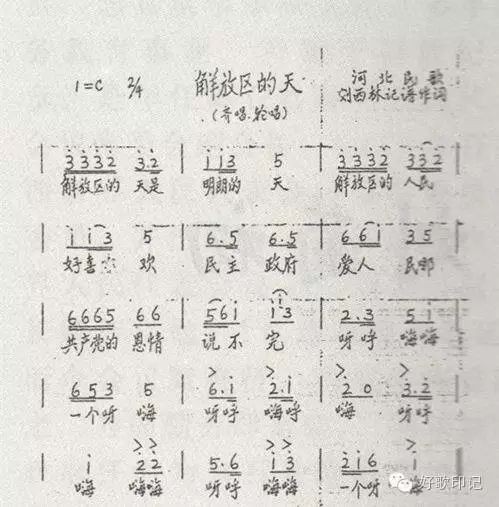 1=C 2/4 解放区的天 河北民歌
(齐唱.轮唱) 刘西林记谱作词
3 3 3 2 3.2 | 1 1 3 5 | 3 3 3 2 3 3 2
解放区的 天是 明朗的 天 解放区的 人民
1 1 3 5 | 6.5 6.5 | 6 6 1 3 5
好喜 欢 民主 政府 爱人 民那
6 6 6 5 6 6 | 5 6 1 1 3 | 2.3 5 1
共产党的 恩情 说不 完 呀呼 嗨嗨
6 5 3 5 | 6.1 2.1 | 2 0 3.2
一个呀 嗨 呀呼 嗨呼 嗨 呀呼
1 2 2 | 5.6 1 3 | 2 1 6 1
嗨 嗨嗨 呀呼 嗨嗨 一个呀 嗨
好歌印记